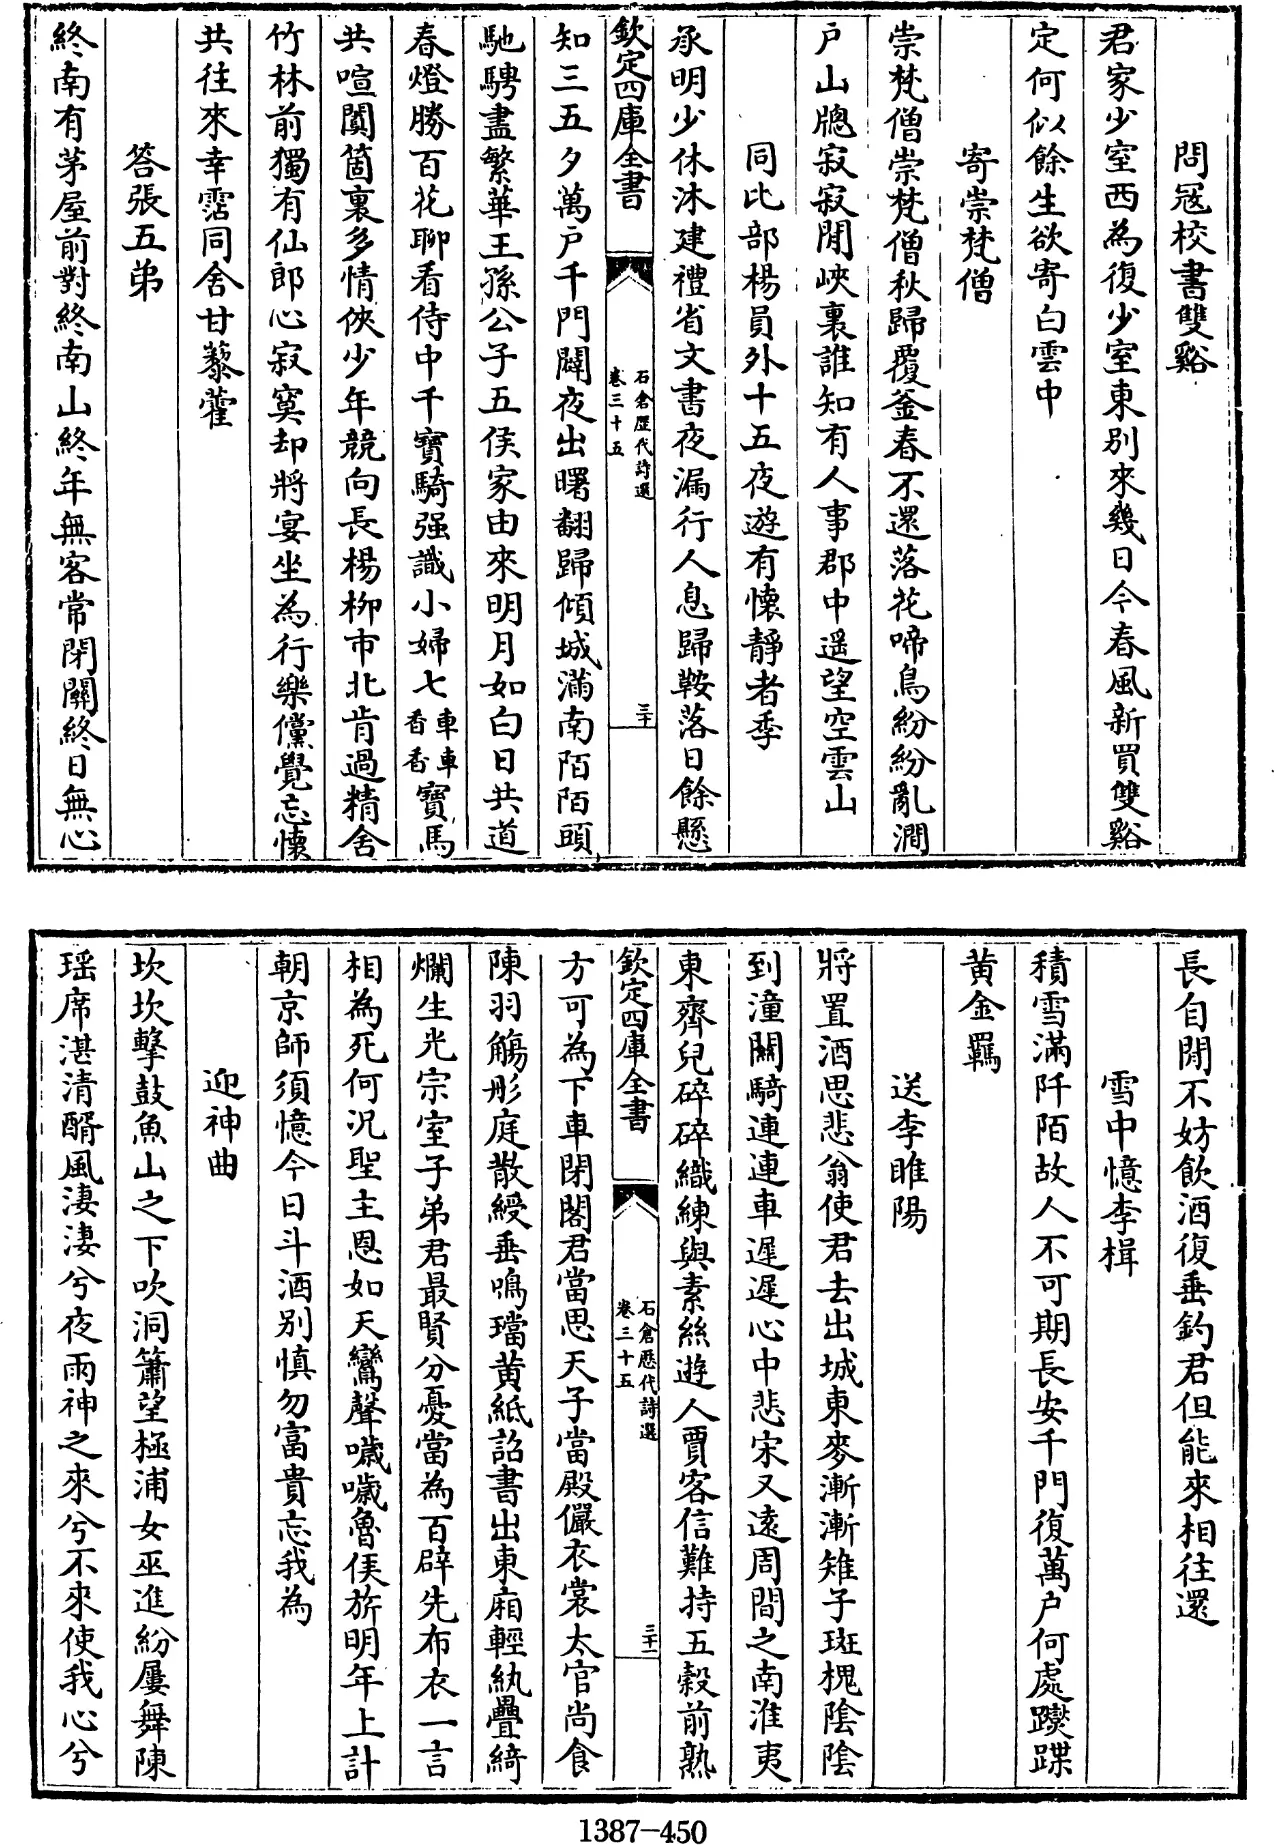 問冦校書雙谿
君家少室西為復少室東别來幾日今春風新買雙谿
定何似餘生欲寄白雲中
寄崇梵僧
崇梵僧崇梵僧秋歸覆釜春不還落花啼鳥紛紛亂澗
户山牕寂寂閒峽裏誰知有人事郡中遥望空雲山
同比部楊員外十五夜遊有懷靜者季
承明少休沐建禮省文書夜漏行人息歸鞍落日餘懸
欽定四庫全書
石倉歷代詩選
卷三十五
三十
知三五夕萬户千門闢夜出曙翻歸傾城滿南陌陌頭
馳騁盡繁華王孫公子五侯家由來明月如白日共道
春燈勝百花聊看侍中千寶騎强識小婦七車車香香寶馬
共喧闐箇裏多情俠少年競向長楊柳市北肯過精舍
竹林前獨有仙郎心寂寞却將宴坐為行樂儻覺忘懷
共往來幸霑同舍甘藜藿
答張五弟
終南有茅屋前對終南山終年無客常閉關終日無心
長自閒不妨飲酒復垂釣君但能來相往還
雪中憶李楫
積雪滿阡陌故人不可期長安千門復萬户何處躞蹀
黄金羈
送李睢陽
將置酒思悲翁使君去出城東麥漸漸雉子斑槐陰陰
到潼關騎連連車遲遲心中悲宋又逺周間之南淮夷
東齊兒碎碎織練與素絲遊人賈客信難持五榖前熟
欽定四庫全書
石倉歷代詩選
卷三十五
三十一
方可為下車閉閤君當思天子當殿儼衣裳太官尚食
陳羽觴彤庭散綬垂鳴璫黄紙詔書出東廂輕紈疊綺
爛生光宗室子弟君最賢分憂當為百辟先布衣一言
相為死何況聖主恩如天鸞聲噦噦魯侯旂明年上計
朝京師須憶今日斗酒别慎勿富貴忘我為
迎神曲
坎坎擊鼓魚山之下吹洞簫望極浦女巫進紛屢舞陳
瑶席湛清酤風淒淒兮夜雨神之來兮不來使我心兮
1387-450